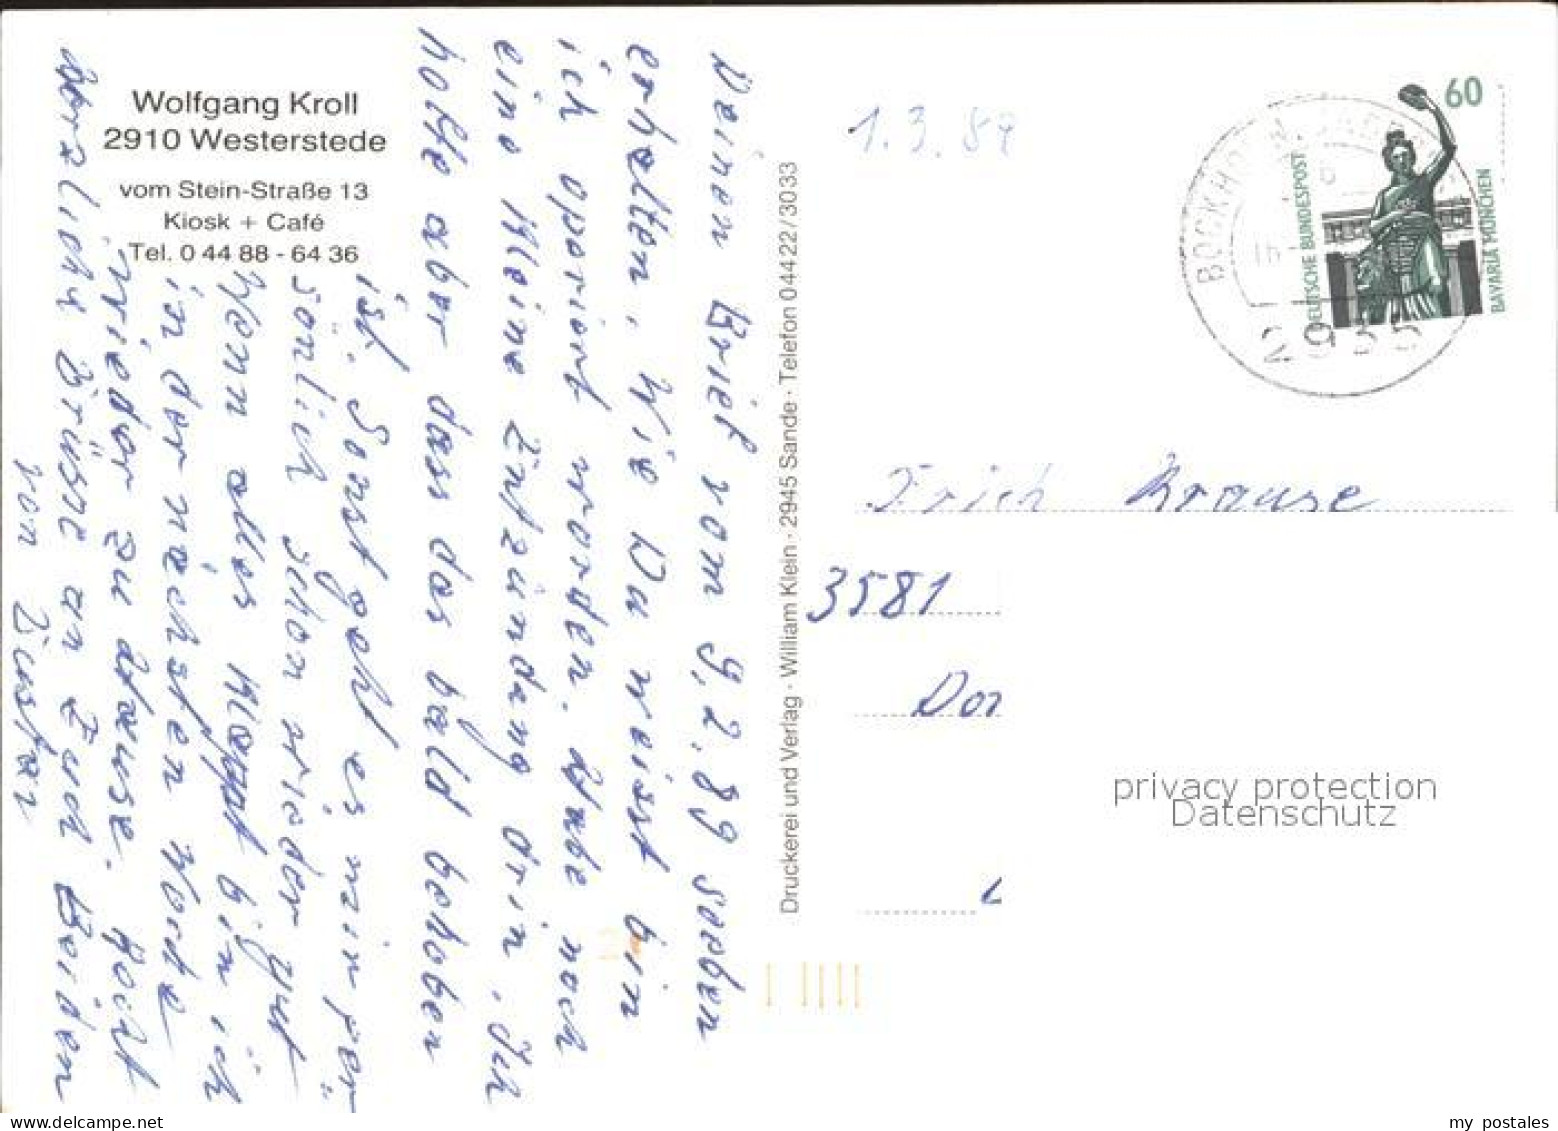 Wolfgang Kroll
2910 Westerstede
vom Stein-Straße 13
Kiosk + Café
Tel. 0 44 88 - 64 36
1.3.89
Deinen Brief vom 9.2.89 soeben
erhalten, Wie Du weisst bin
ich operiert worden. Habe noch
eine kleine Entzündung drin. Ich
hoffe aber dass das bald behoben
ist. Sonst geht es mir per
sönlich schon wieder gut
Wenn alles klappt bin ich
in der nächsten Woche
wieder zu Hause. Recht
herzliche Grüsse an Euch Beiden
von
Druckerei und Verlag · William Klein · 2945 Sande · Telefon 04422/3033
60
DEUTSCHE BUNDESPOST
BAVARIA MÜNCHEN
BOCKHORN
2935
Erich Krause
3581
privacy protection
Datenschutz
my postales